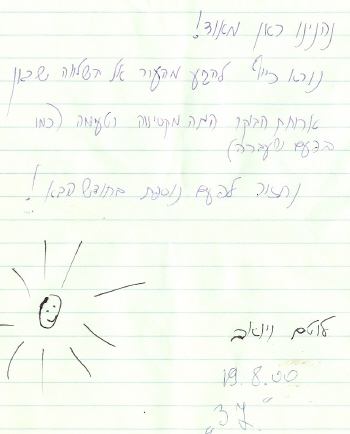 נהנינו כאן מאוד!
נורא כייף להגיע מהעיר אל השלווה שכאן
ארוחת הבוקר היתה מקסימה וטעימה (כמו
בפעם שעברה)
נחזור לפעם נוספת בחודש הבא!
לוטם ויואב
19.8.00